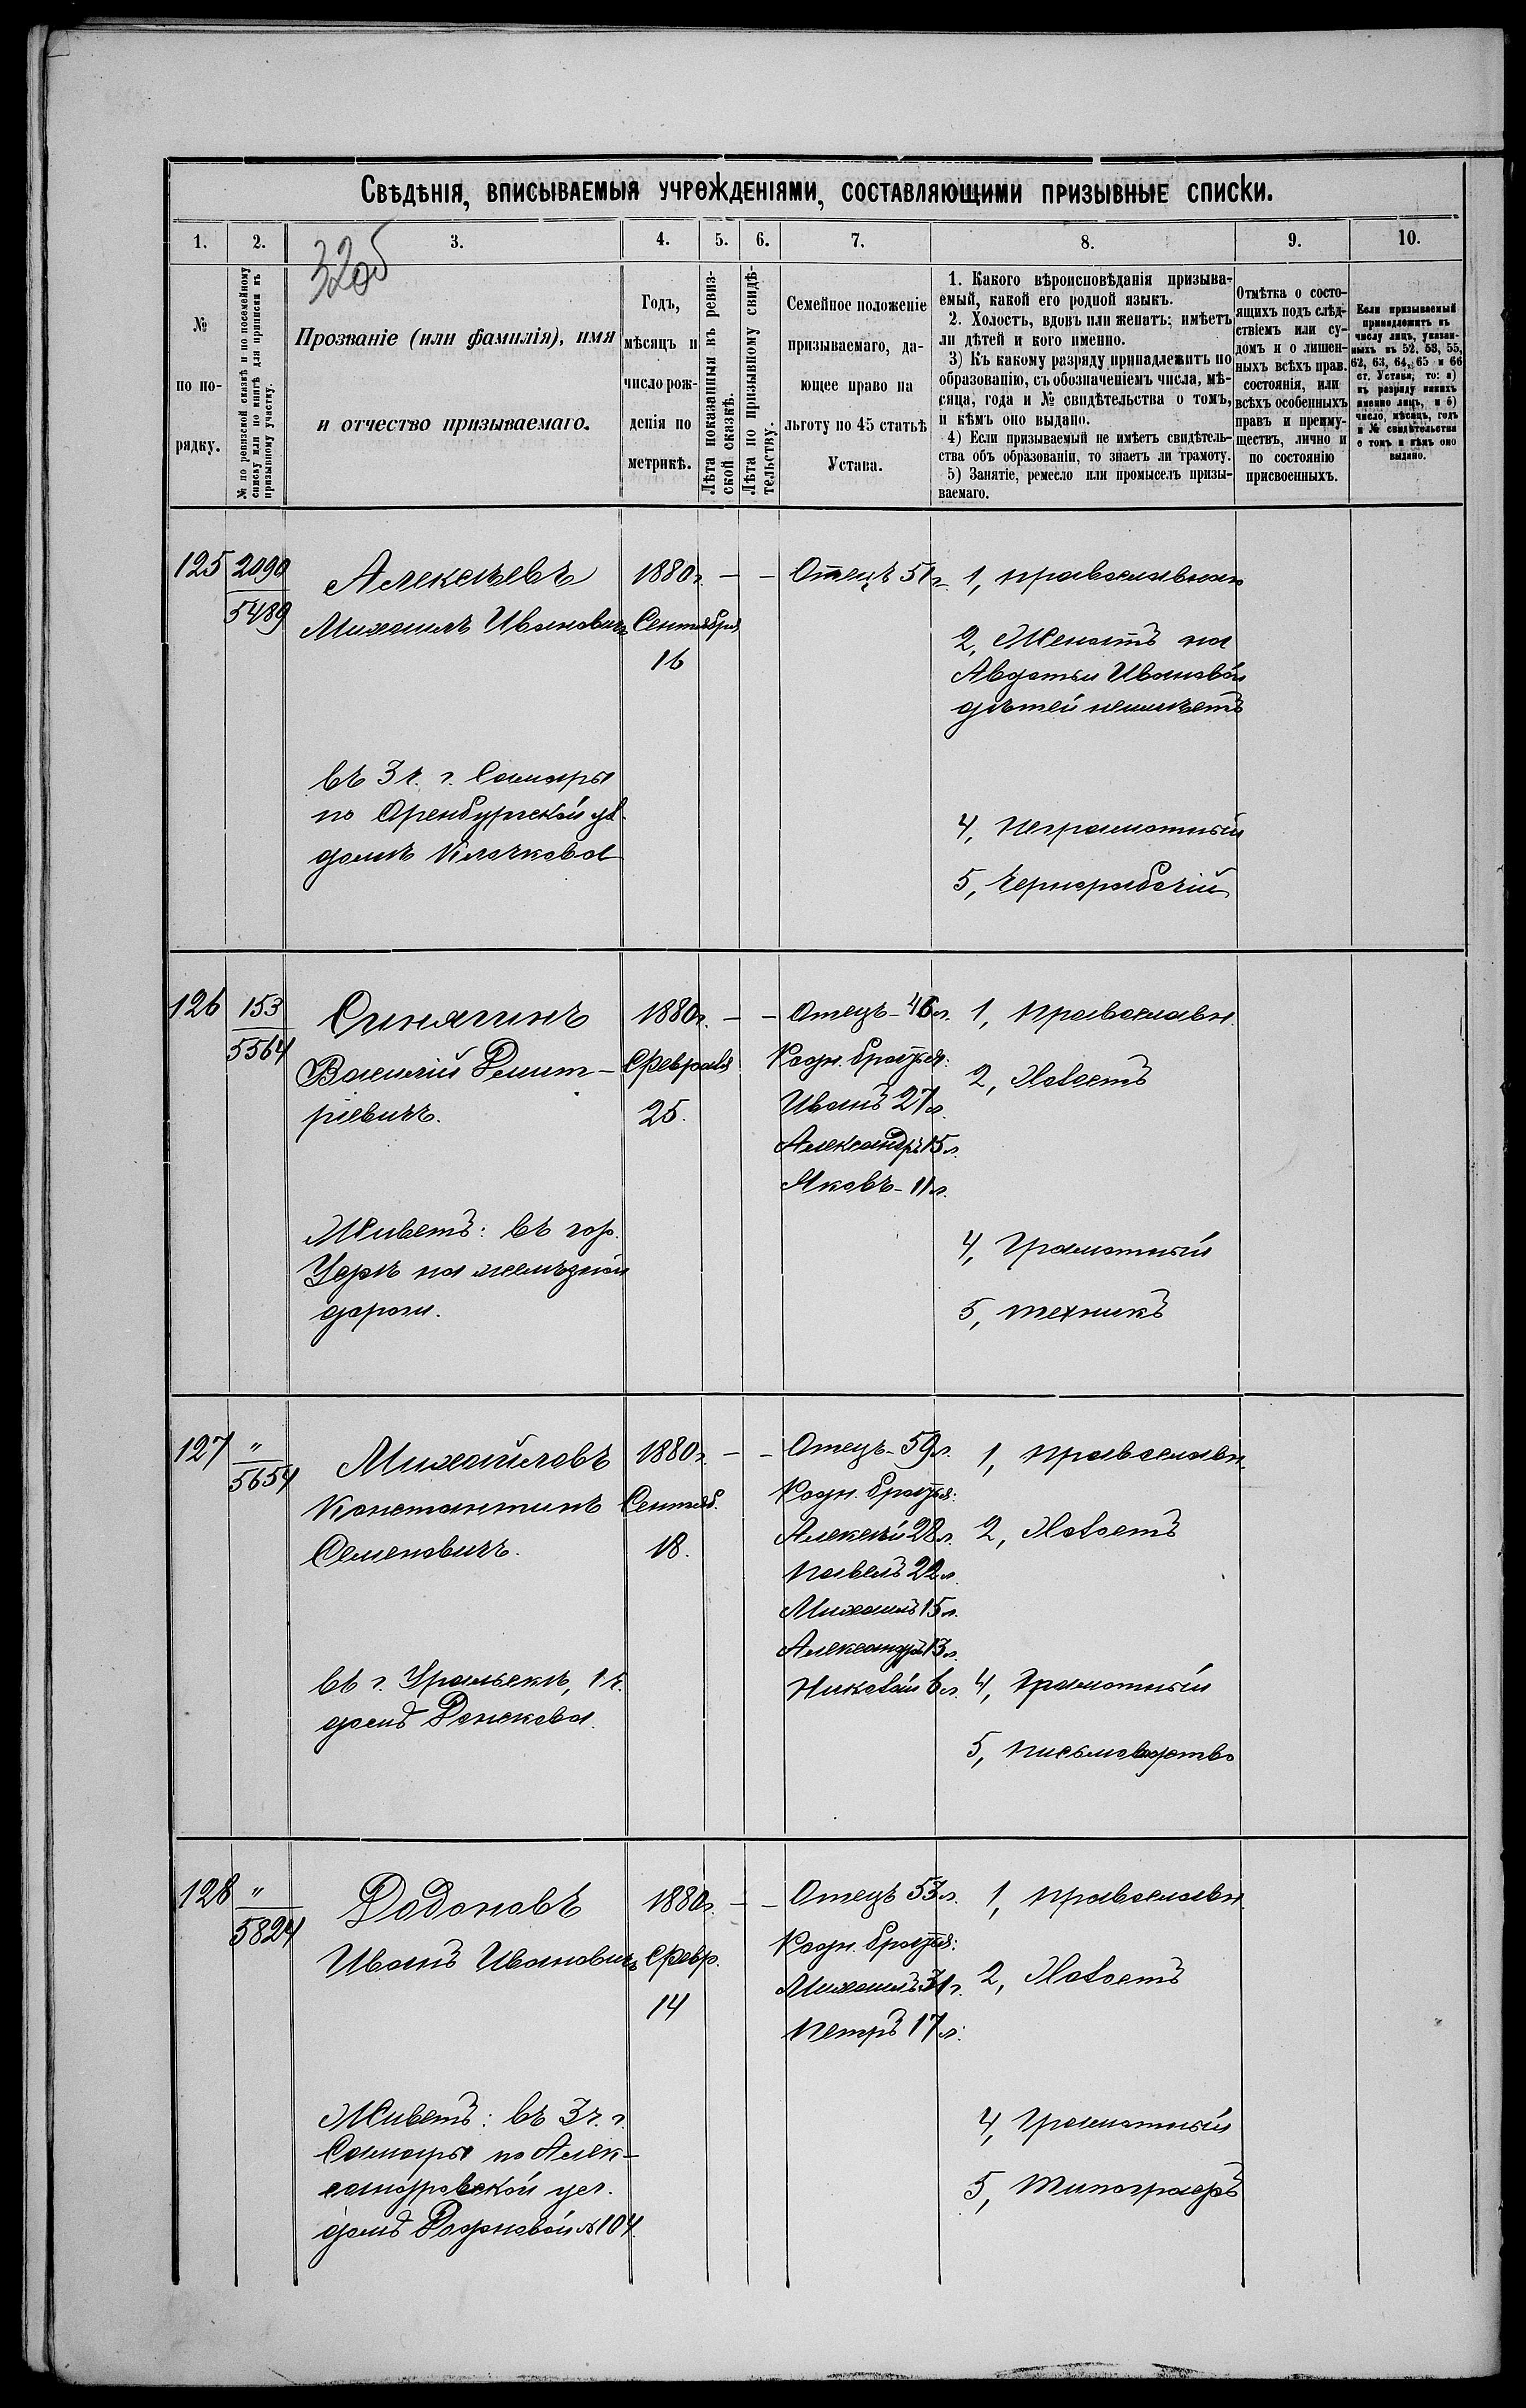 Свѣдѣнія, вписываемыя учрежденіями, составляющими призывные списки.
1. 2. 3. 4. 5. 6. 7. 8. 9. 10.
32об
№
по по-
рядку.
№ по ревизской сказкѣ и по посемейному
списку или по книгѣ для приписки къ
призывному участку.
Прозваніе (или фамилія), имя
и отчество призываемаго.
Годъ,
мѣсяцъ и
число рож-
денія по
метрикѣ.
Лѣта показанныя въ ревиз-
ской сказкѣ.
Лѣта по призывному свидѣ-
тельству.
Семейное положеніе
призываемаго, да-
ющее право на
льготу по 45 статьѣ
Устава.
1. Какого вѣроисповѣданія призыва-
емый, какой его родной языкъ.
2. Холостъ, вдовъ или женатъ; имѣетъ
ли дѣтей и кого именно.
3) Къ какому разряду принадлежитъ по
образованію, съ обозначеніемъ числа, мѣ-
сяца, года и № свидѣтельства о томъ,
и кѣмъ оно выдано.
4) Если призываемый не имѣетъ свидѣтель-
ства объ образованіи, то знаетъ ли грамоту.
5) Занятіе, ремесло или промыселъ призы-
ваемаго.
Отмѣтка о состо-
ящихъ подъ слѣд-
ствіемъ или су-
домъ и о лишен-
ныхъ всѣхъ прав.
состоянія, или
всѣхъ особенныхъ
правъ и преиму-
ществъ, лично и
по состоянію
присвоенныхъ.
Если призываемый
принадлежитъ къ
числу лицъ, указан-
ныхъ въ 52, 53, 55,
62, 63, 64, 65 и 66
ст. Устава; то: а)
къ разряду какихъ
именно лицъ, и б)
число, мѣсяцъ, годъ
и № свидѣтельства
о томъ и кѣмъ оно
выдано.
125
2090
5489
Алексѣевъ
Михаилъ Ивановичъ
въ 3 ч. г. Самары
по Оренбургской ул.
домъ Клочкова
1880 г.
Сентября
16
—
—
Отецъ 51 г.
1, православный
2, Женатъ на
Авдотьи Ивановой
дѣтей неимѣетъ
4, Неграмотный
5, Чернорабочій
126
153
5564
Синягинъ
Василій Дмит-
ріевичъ.
Живетъ: въ гор.
Уфѣ на желѣзной
дороги.
1880 г.
Февраля
25.
—
—
Отецъ - 46 л.
Родн. братья:
Иванъ 27 л.
Александръ 15 л.
Яковъ - 11 л.
1, православн.
2, Холостъ
4, Грамотный
5, техникъ
127
"
5654
Михайловъ
Константинъ
Семеновичъ.
въ г. Уральскѣ, 1 ч.
домъ Донскова.
1880 г.
Сентяб.
18.
—
—
Отецъ - 59 л.
Родн. братья:
Алексѣй 28 л.
Павелъ 22 л.
Михаилъ 15 л.
Александръ 13 л.
Николай 6 л.
1, православн.
2, Холостъ
4, Грамотный
5, Письмоводство
128
"
5824
Додоновъ
Иванъ Ивановичъ
Живетъ: въ 3 ч. г.
Самары по Алек-
сандровской ул.
домъ Додоновой № 104.
1880 г.
Февр.
14
—
—
Отецъ 53 л.
Родн. братья:
Михаилъ 31 г.
Петръ 17 л.
1, православн.
2, Холостъ
4, Грамотный
5, Типографъ